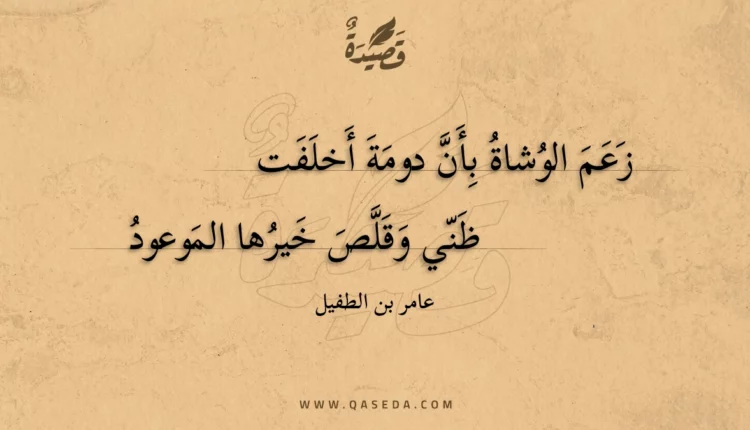 قَصِيدَةٌ
زَعَمَ الوُشاةُ بِأَنَّ دومَةَ أَخلَفَت
ظَنّي وَقَلَّصَ خَيرُها المَوعودُ
عامر بن الطفيل
WWW.QASEDA.COM